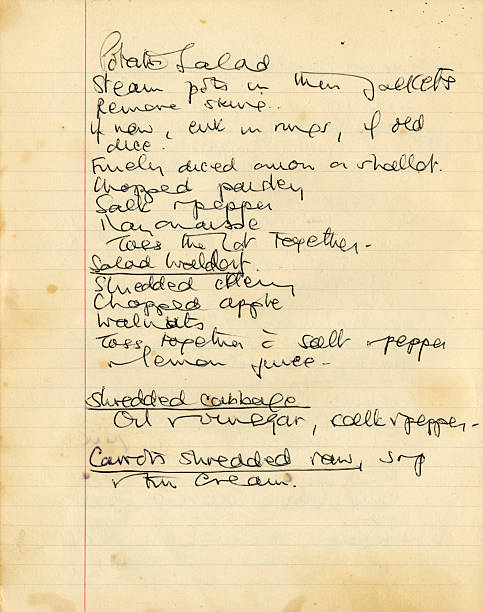 Potato Salad
Steam pots in their jackets
Remove skins.
If new, cut in rings, if old
dice.
Finely diced onion or shallot.
Chopped parsley
Salt & pepper
Mayonnaise
Toss the lot together -
Salad Waldorf.
Shredded celery
Chopped apple
Walnuts
Toss together c̄ salt & pepper
& lemon juice -
Shredded cabbage
Oil & vinegar, salt & pepper -
Carrots shredded raw,
& cream.